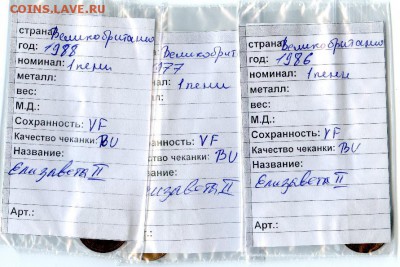 COINS.LAVE.RU
страна: Великобритания
год: 1988
номинал: 1 пенни
металл:
вес:
М.Д.:
Сохранность: VF
Качество чеканки: BU
Название:
Елизавета II
Арт.:
Великобрит
977
ал: 1 пенни
VF
BU
Елизавета II
страна: Великобритания
год: 1986
номинал: 1 пенни
металл:
вес:
М.Д.:
Сохранность: VF
Качество чеканки: BU
Название:
Елизавета II
Арт.:
COINS.LAVE.RU